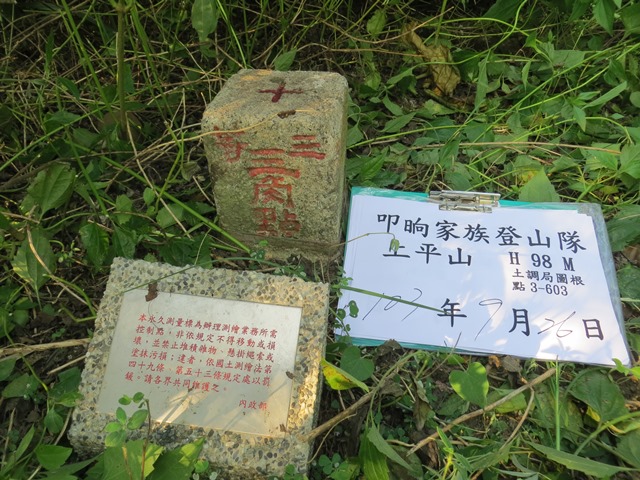 十
三角
三
叩晌家族登山隊
土平山 H 98 M
土調局圖根
點 3-603
107年 9月 26日
本永久測量標為辦理測繪業務所需
控制點，非依規定不得移動或損
壞，並禁止堆積雜物、懸掛繩索或
塗抹污損；違者，依國土測繪法第
四十九條、第五十三條規定處以罰
鍰，請各界共同維護之。
內政部